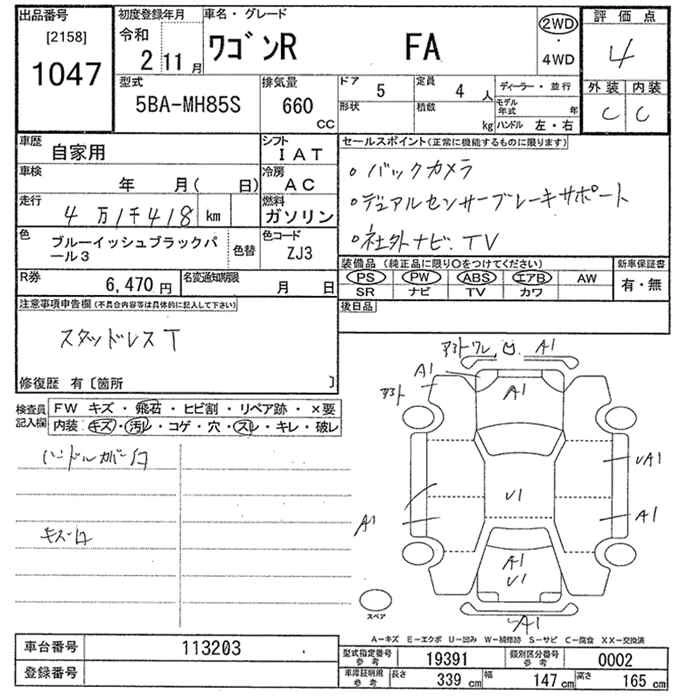 出品番号
[2158]
1047
初度登録年月
令和
2 11月
車名・グレード
ワゴンR FA
2WD
・
4WD
評価点
4
外装 内装
C C
型式
5BA-MH85S
排気量
660
CC
ドア
5
形状
定員
4 人
積載
kg
ディーラー・並行
モデル年式 年
ハンドル 左・右
車歴
自家用
シフト
IAT
車検
年 月( 日)
冷房
AC
走行
4万1千418 km
燃料
ガソリン
色
ブルーイッシュブラックパール3
色替
色コード
ZJ3
R券
6,470円
名変通知期限
月 日
セールスポイント(正常に機能するものに限ります)
。バックカメラ
。デュアルセンサーブレーキサポート
。社外ナビ、TV
装備品 (純正品に限り〇をつけてください)
PS PW ABS エアB AW
SR ナビ TV カワ
新車保証書
有・無
後日品
注意事項申告欄(不具合内容等は具体的に記入して下さい)
スタッドレスT
修復歴 有〔箇所 〕
検査員記入欄
FW キズ・飛石・ヒビ割・リペア跡・×要
内装 キズ・汚レ・コゲ・穴・スレ・キレ・破レ
ハンドルカバー
キズ
A1
A1
A1
UA1
U1
A1
A1
A1
U1
A1
スペア
A-キズ E-エクボ U-凹み W-補修跡 S-サビ C-腐食 XX-交換済
車台番号
113203
登録番号
型式指定番号
参考
19391
類別区分番号
参考
0002
車庫証明用
参考
長さ
339 cm
幅
147 cm
高さ
165 cm